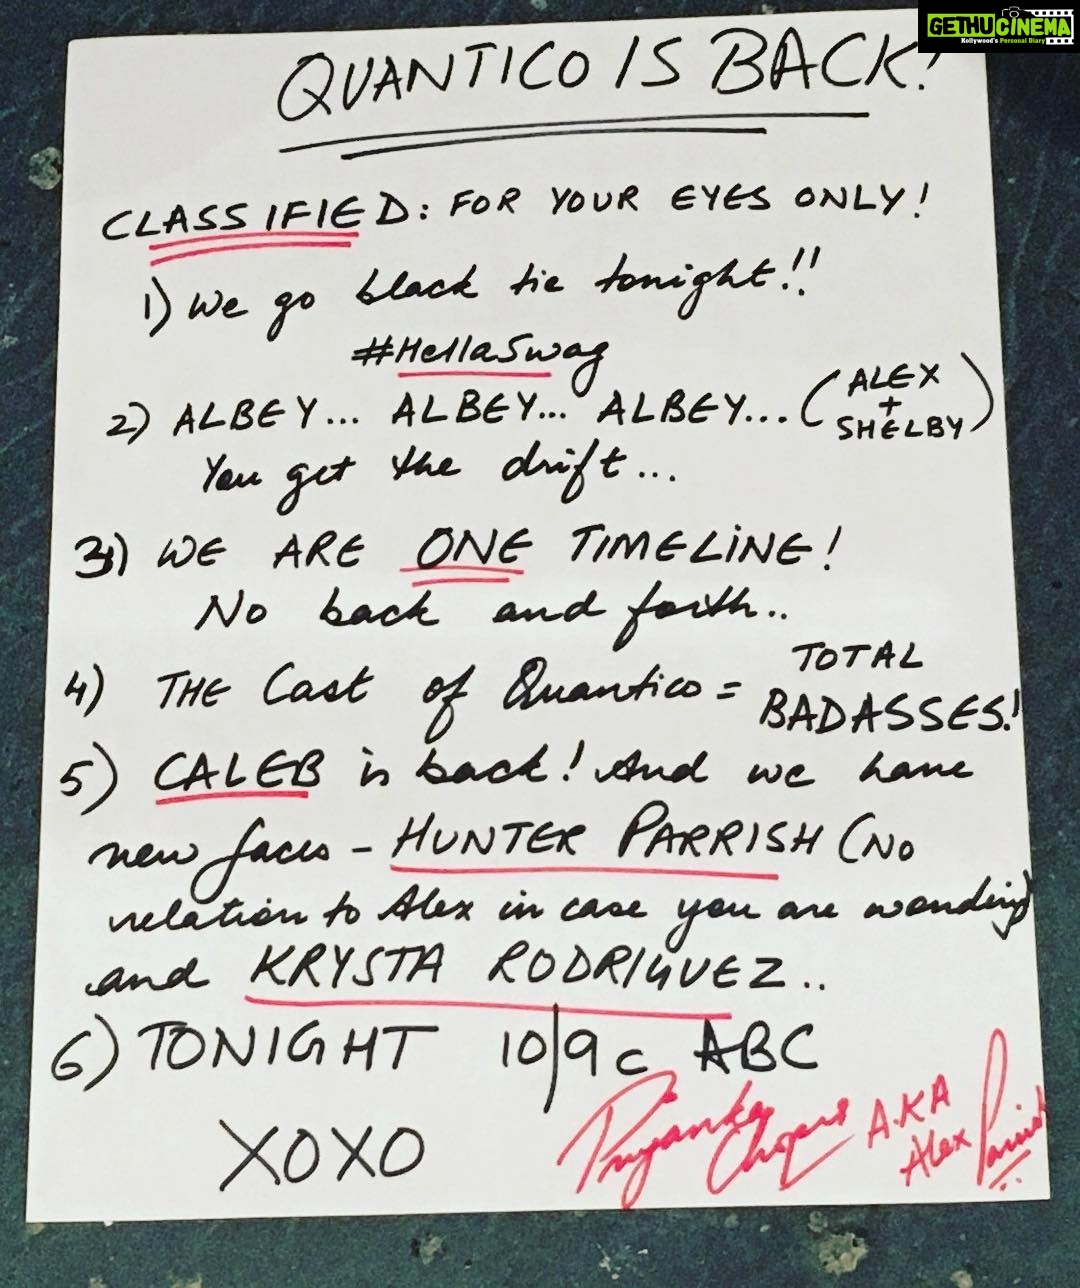 GETHUCINEMA
Kollywood's Personal Diary
QUANTICO IS BACK!
CLASSIFIED: FOR YOUR EYES ONLY!
1) We go black tie tonight!!
#HellaSwag
2) ALBEY... ALBEY... ALBEY... (ALEX + SHELBY)
You get the drift...
3) WE ARE ONE TIMELINE!
No back and forth..
4) THE Cast of Quantico = TOTAL BADASSES!
5) CALEB is back! And we have
new faces - HUNTER PARRISH (No
relation to Alex in case you are wondering
and KRYSTA RODRIGUEZ..
6) TONIGHT 10|9c ABC
XOXO
Priyanka Chopra A.K.A Alex Parrish